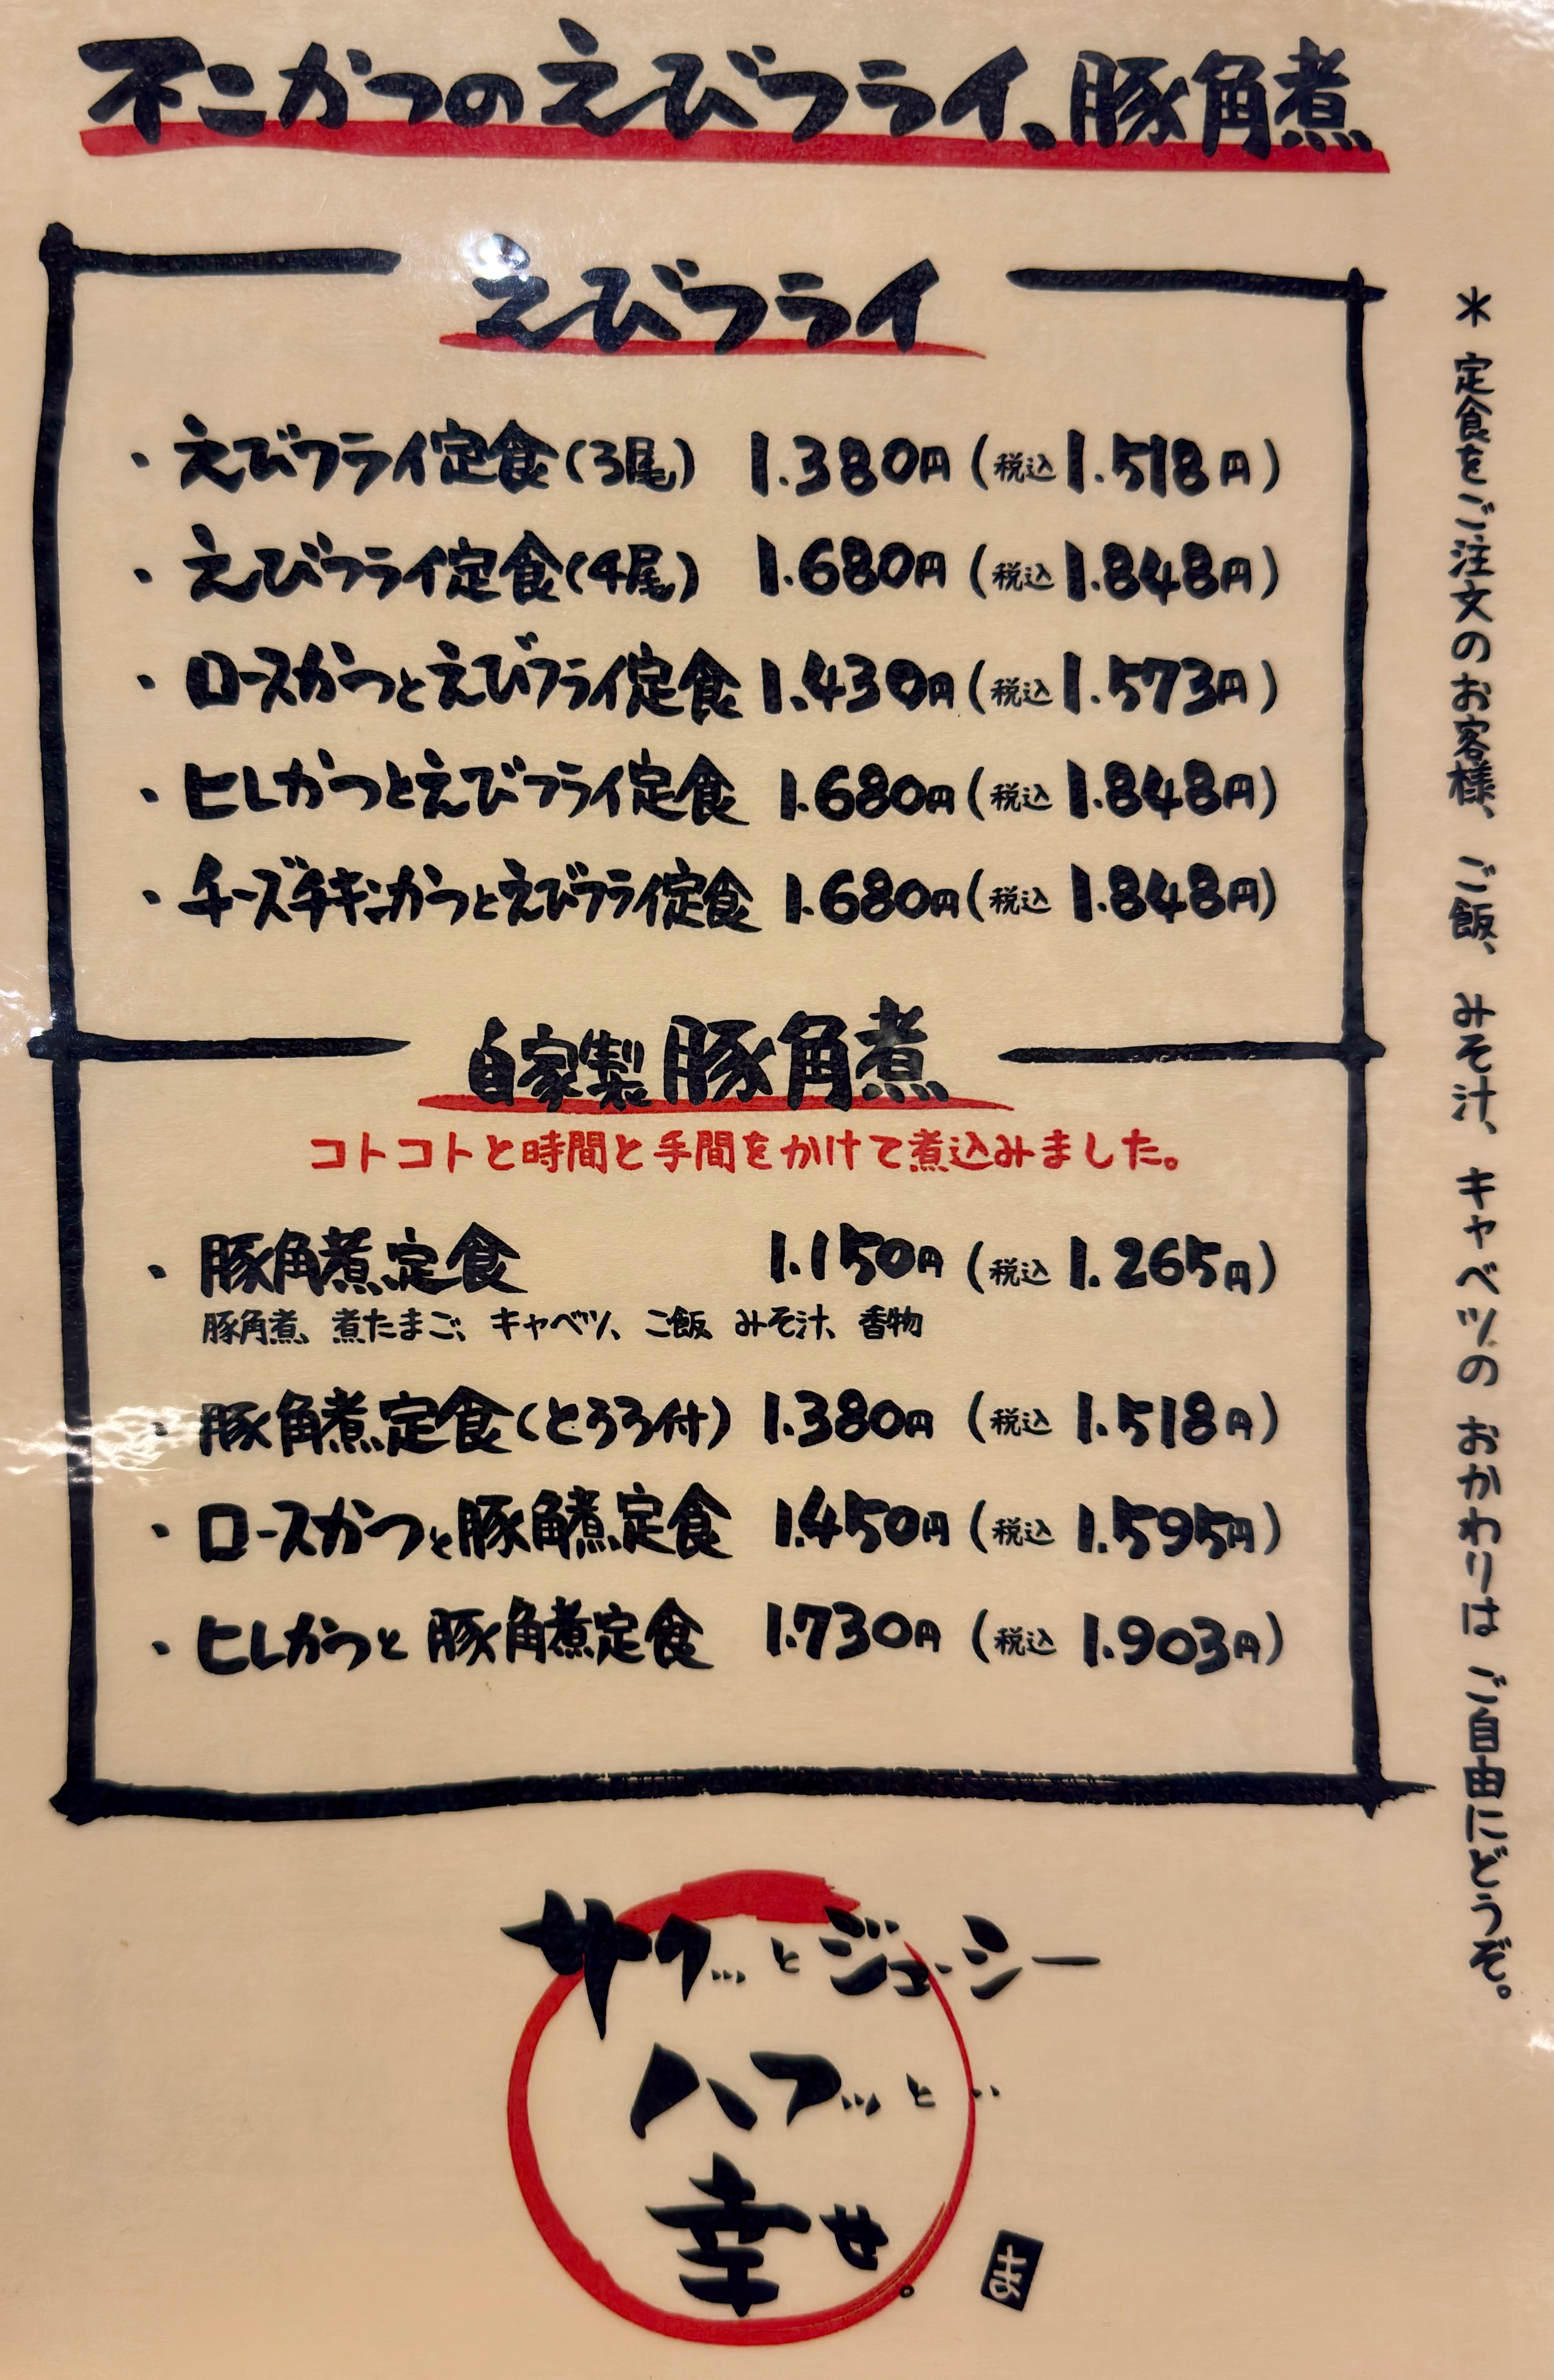 不二かつのえびフライ、豚角煮
えびフライ
・えびフライ定食(3尾) 1.380円(税込1.518円)
・えびフライ定食(4尾) 1.680円(税込1.848円)
・ロースかつとえびフライ定食 1.430円(税込1.573円)
・ヒレかつとえびフライ定食 1.680円(税込1.848円)
・チーズチキンかつとえびフライ定食 1.680円(税込1.848円)
自家製豚角煮
コトコトと時間と手間をかけて煮込みました。
・豚角煮定食 1.150円(税込1.265円)
豚角煮、煮たまご、キャベツ、ご飯、みそ汁、香物
・豚角煮定食(とろろ付) 1.380円(税込1.518円)
・ロースかつと豚角煮定食 1.450円(税込1.595円)
・ヒレかつと豚角煮定食 1.730円(税込1.903円)
＊定食をご注文のお客様、ご飯、みそ汁、キャベツのおかわりはご自由にどうぞ。
サクッ…とジューシー
ハフッ…と‥
幸せ。